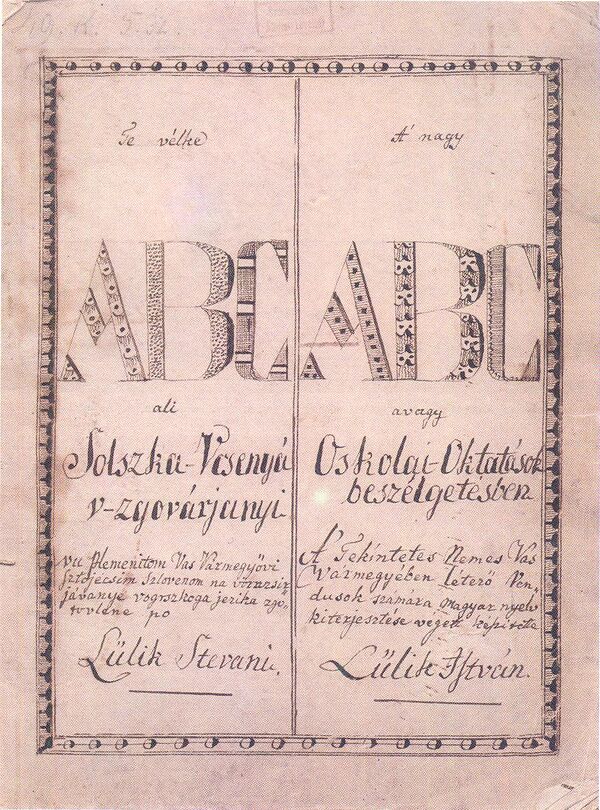 Te vélke
ABC
ali
Solszka-Vcsenyá
v-zgovárjanyi
vu Plemenitom Vas Vármegyövi
Sztojécsim Szlovenom na
jávanye vogrszkoga jezika zgo-
tovlene po
Lülik Stevani.
A' nagy
ABC
avagy
Oskolai-Oktatások
beszélgetésben
A' Tekintetes Nemes Vas
Vármegyében léterő Ven-
dusok számára magyar nyelv
kiterjesztése végett
Lülik István.